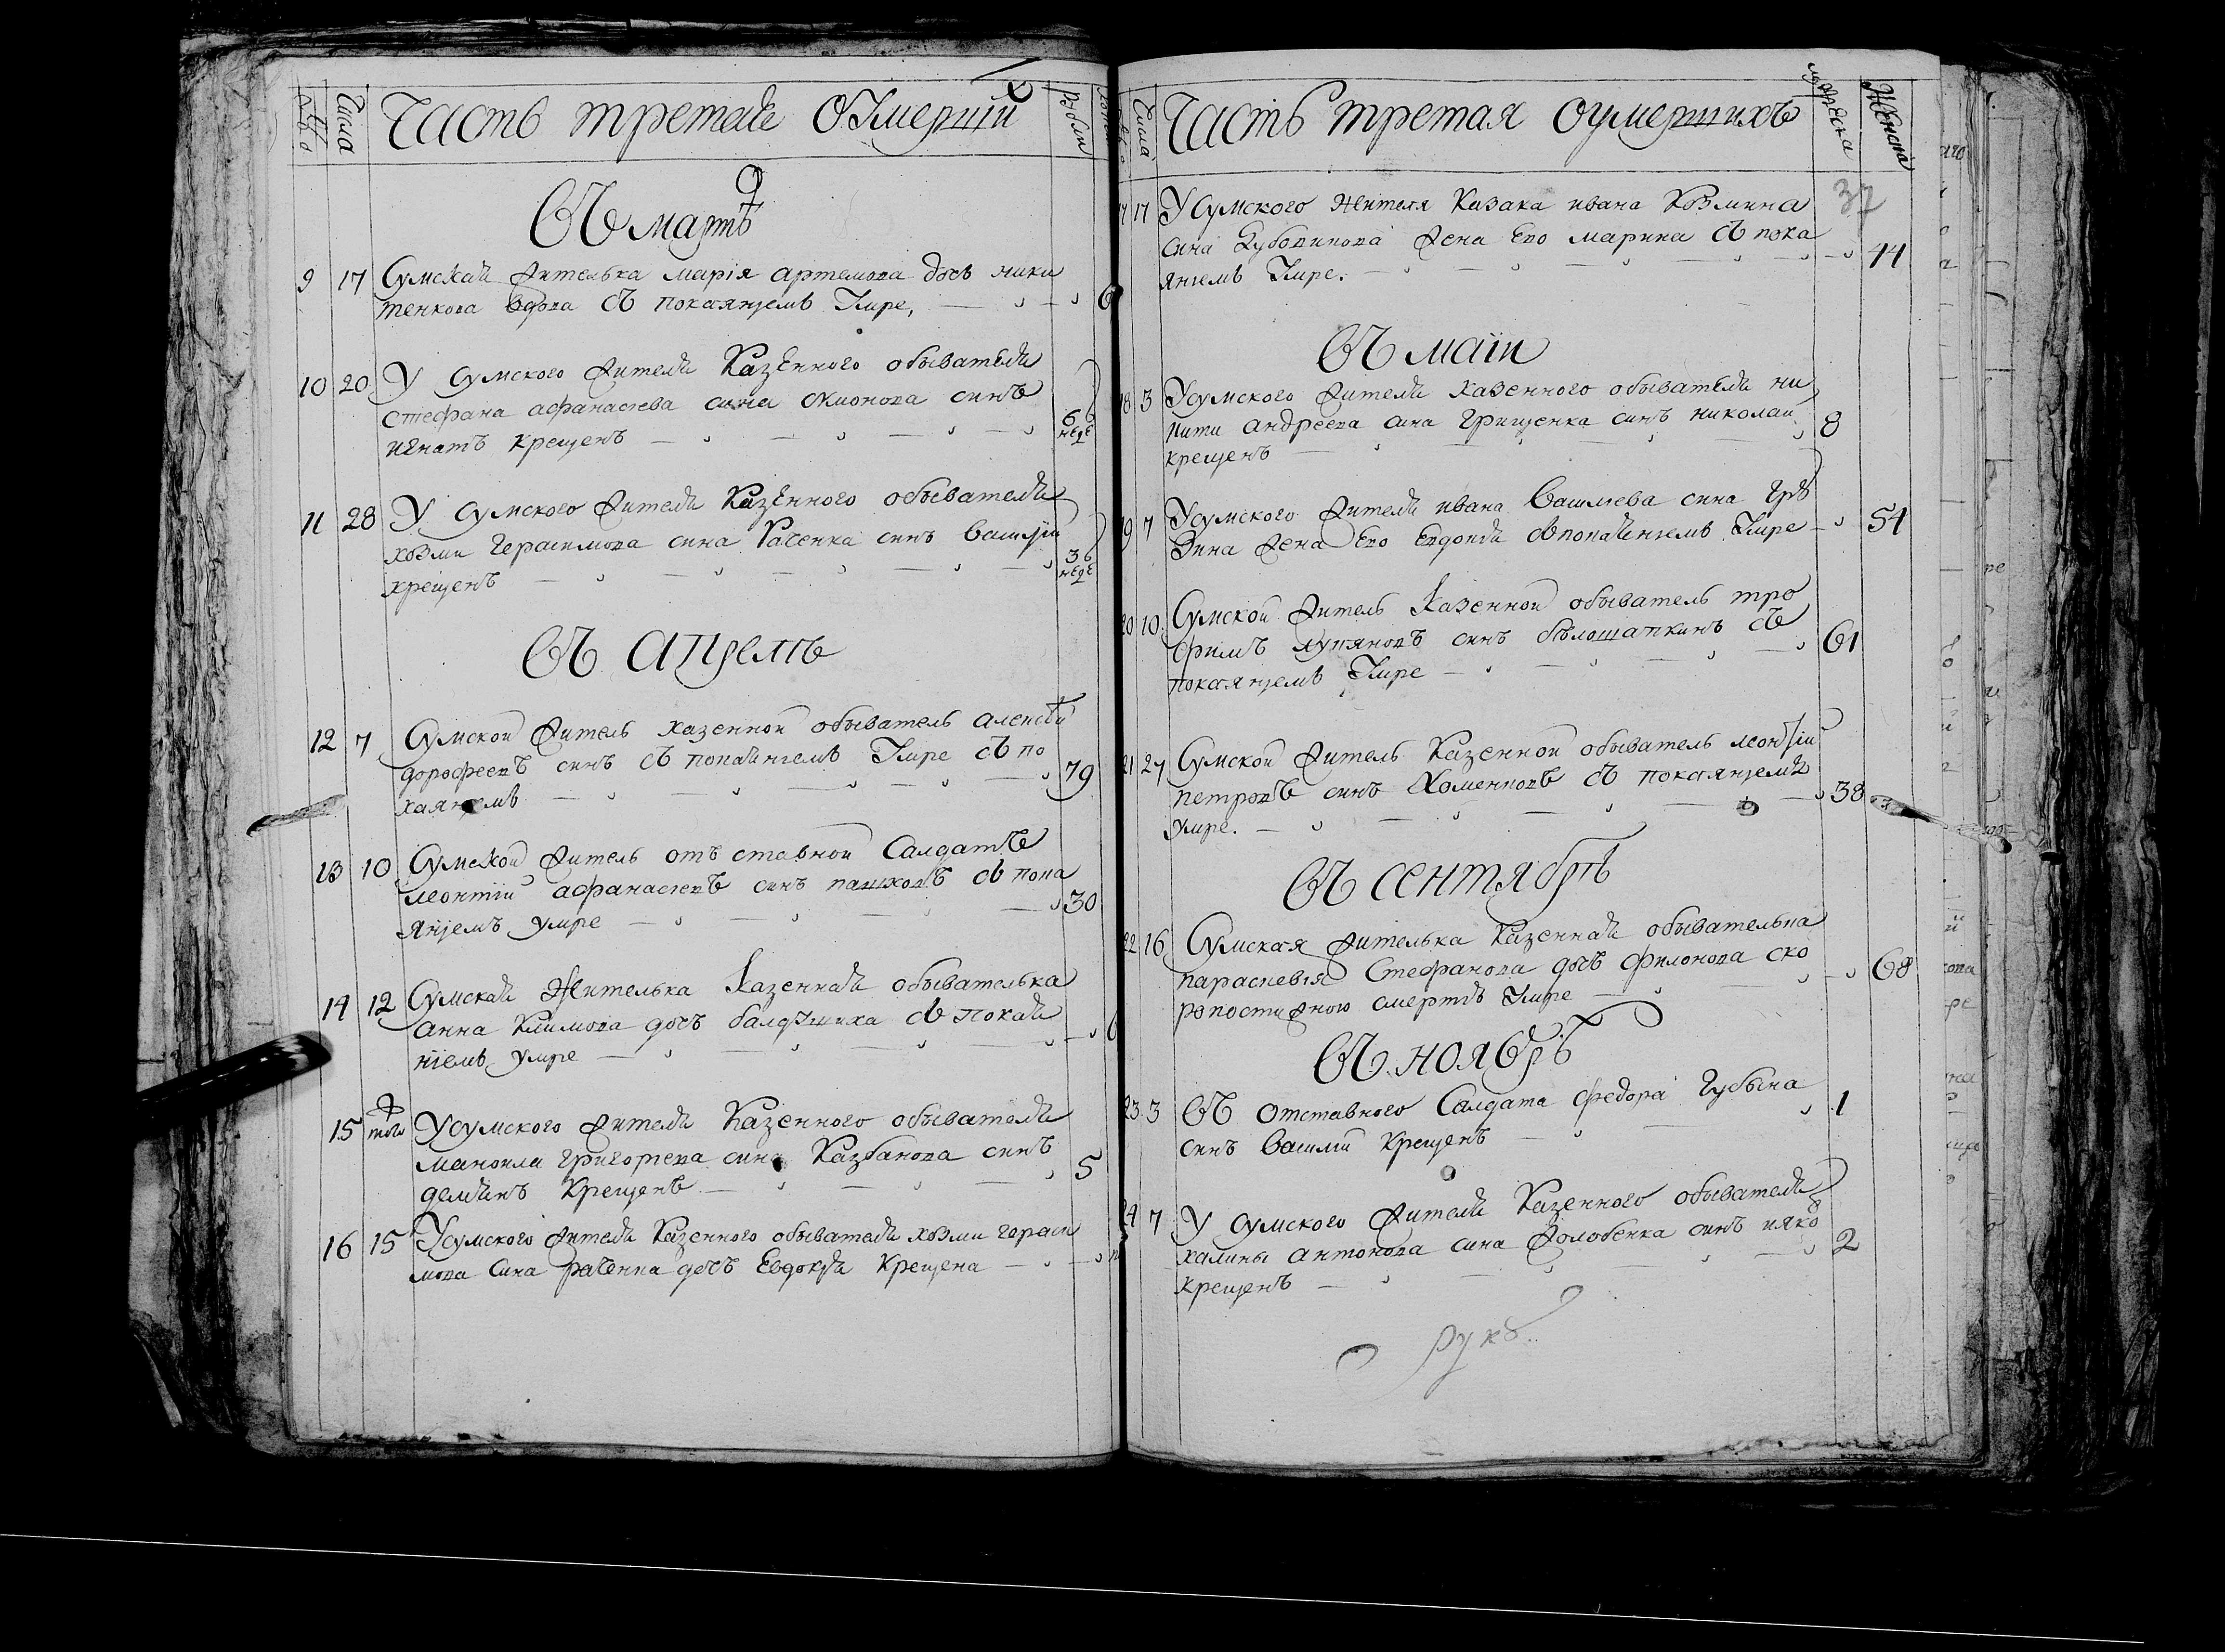 Числа
Часть третая О Умерших
Рубли
Въ мартѣ
9 17 Сумская жителька марія артемова дочь ники
тенкова вдова съ покаянјемъ Умре,
10 20 У Сумского жителя Казенного обывателя
стефана афанасіева сина синъ
игнатъ крещенъ 6 неде
11 28 У Сумского жителя Казенного обывателя
козми Герасимова сина Раченка синъ Василјй
крещенъ 3 неде
Въ Апрелѣ
12 7 Сумской житель казенной обыватель алексѣй
дорофеевъ синъ съ покаяніемъ Умре съ по
каянјемъ 79
13 10 Сумской житель отъ ставной Салдатъ
леонтіи афанасіевъ синъ пашковъ съ пока
янјемъ умре 30
14 12 Сумская Жителька Казенная обывателька
анна Климова дочь съ покая
ніемъ умре
15 того Усумского жителя Казенного обывателя
маноила григоріева сина Казбанова синъ
демянъ Крещенъ 5
16 15 Усумского жителя Казенного обывателя козми гераси
мова Сина раченка дочь Евдокія Крещена
Числа
Часть третая оумершихъ
мужеска
Женска
37
17 17 У Сумского жителя Казака ивана Козмина
сина жена Его марина съ пока
яніемъ Умре. 44
Въ маіи
18 3 Усумского жителя казенного обывателя ни
кити андреева сина Грищенка синъ николаи
крещенъ 8
19 7 Усумского жителя ивана Василіева сина Грѣ
жена Его Евдокія съ покаяніемъ Умре 54
20 10 Сумской житель Казенной обыватель тро
фимъ лукяновъ синъ бѣлошапкинъ съ
покаянјемъ Умре 61
21 27 Сумской житель Казенной обыватель леонтіи
петровъ синъ Хоменковъ съ покаянјемъ
умре. 38
Въ сентябрѣ
22 16 Сумская жителька Казенная обывателька
параскевія Стефанова дочь филонова ско
ропостижною смертію Умре 68
Въ ноябрѣ
23 3 Въ отставного Салдата федора Губина
синъ Василіи Крещенъ 1
24 7 У сумского жителя Казенного обывателя
калины антонова сина Холобенка синъ яко
крещенъ 2
руко